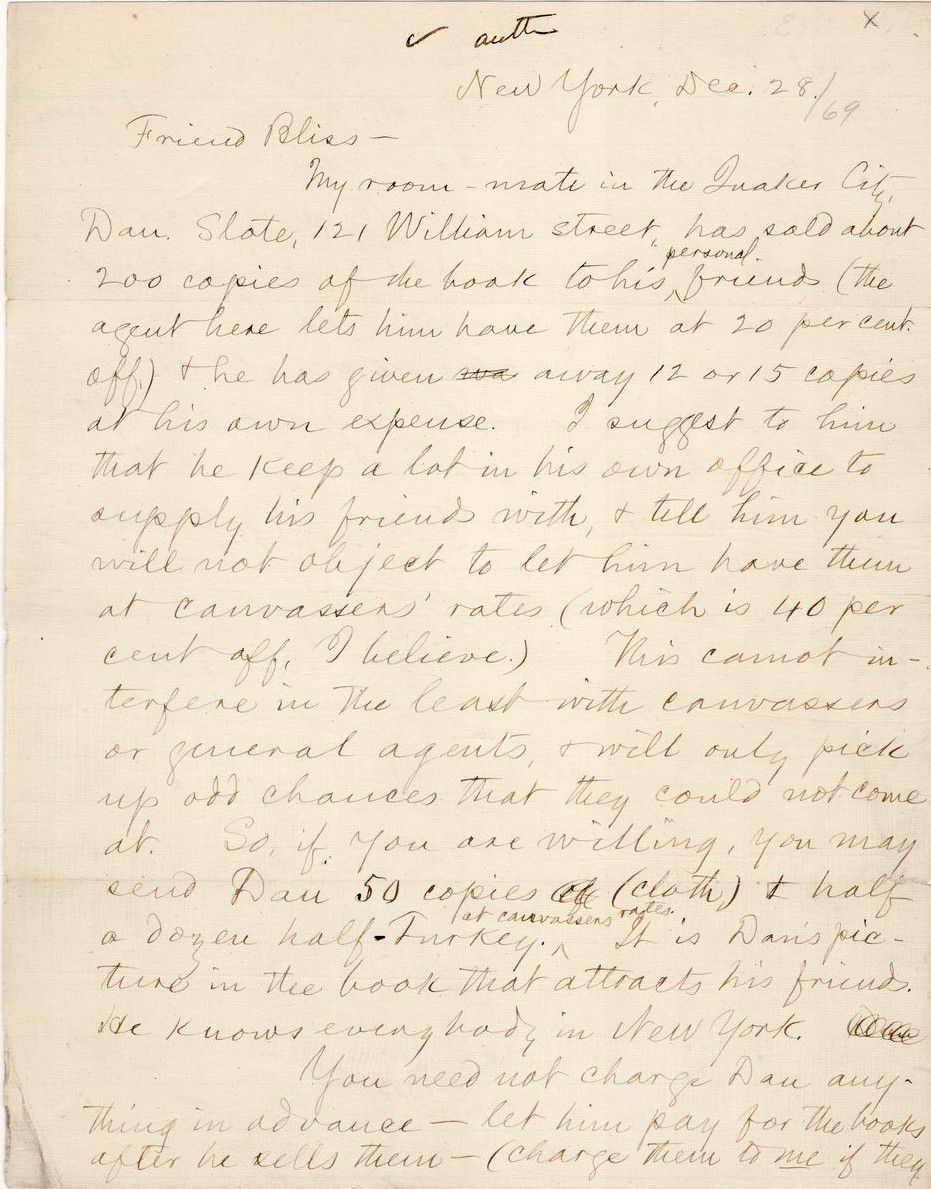 ✓ auth x
New York, Dec. 28./69
Friend Bliss —
My room-mate in the Quaker City,
Dan. Slote, 121 William street, has sold about
200 copies of the book to his ^personal^ friends (the
agent here lets him have them at 20 per cent.
off,) & he has given away 12 or 15 copies
at his own expense. I suggest to him
that he keep a lot in his own office to
supply his friends with, & tell him you
will not object to let him have them
at canvassers' rates (which is 40 per
cent off, I believe.) This cannot in-
terfere in the least with canvassers
or general agents, & will only pick
up odd chances that they could not come
at. So, if you are willing, you may
send Dan 50 copies (cloth) & half
a dozen half-Turkey. ^at canvassers rates.^ It is Dan's pic-
ture in the book that attracts his friends.
He knows everybody in New York.
You need not charge Dan any-
thing in advance — let him pay for the books
after he sells them — (charge them to me if they